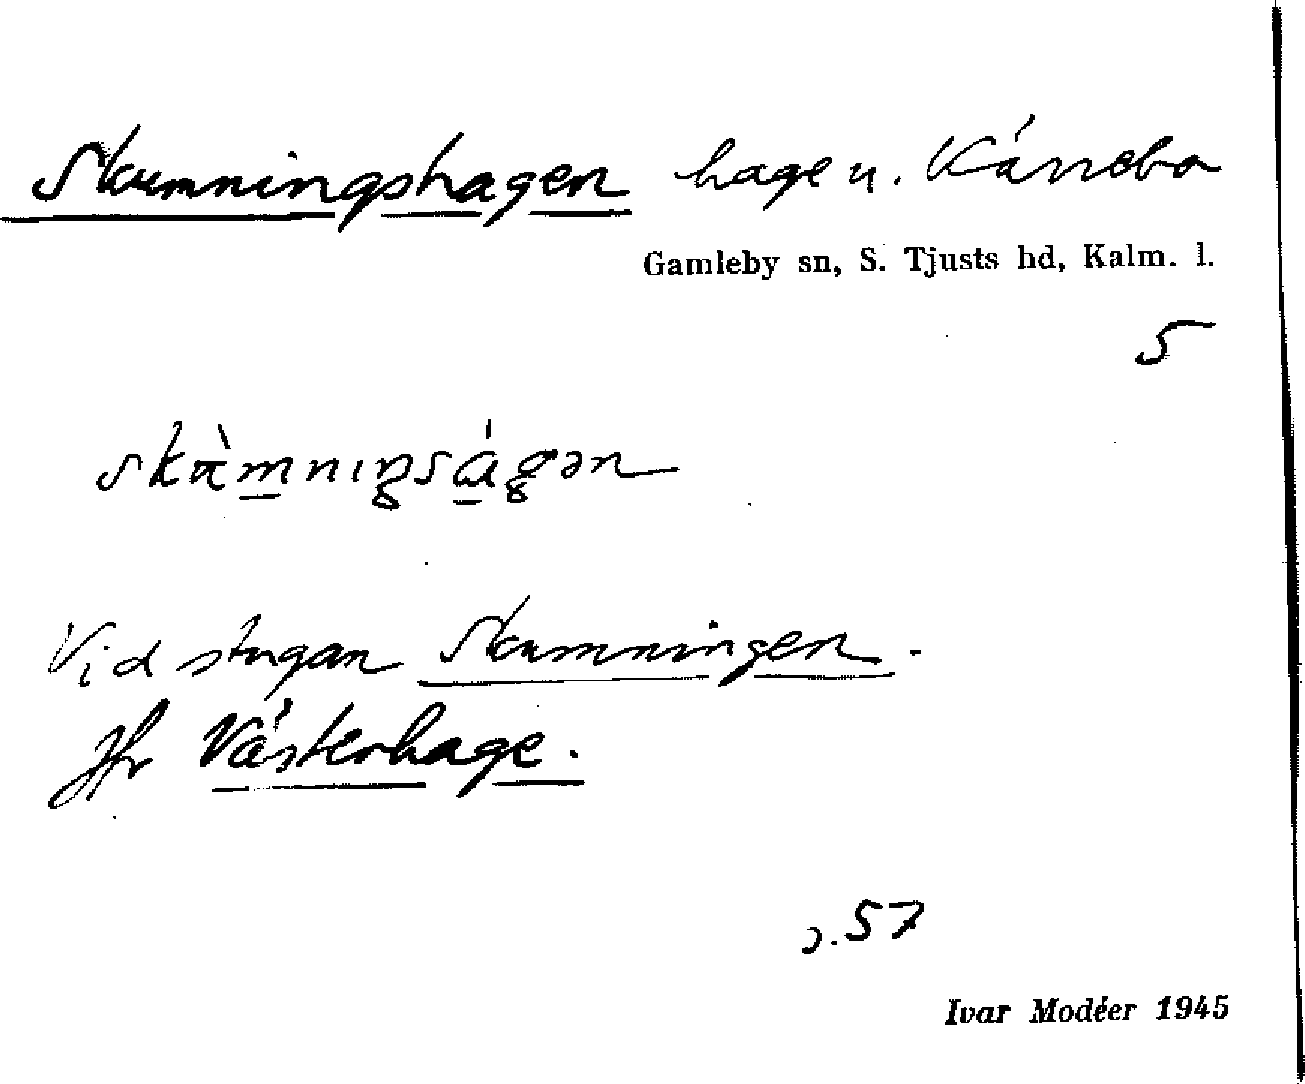 Skumningshagen hage u. Kärrebo
Gamleby sn, S. Tjusts hd, Kalm. l.
5
Vid stugan Skumningen.
Jfr Västerhage.
s. 57
Ivar Modéer 1945